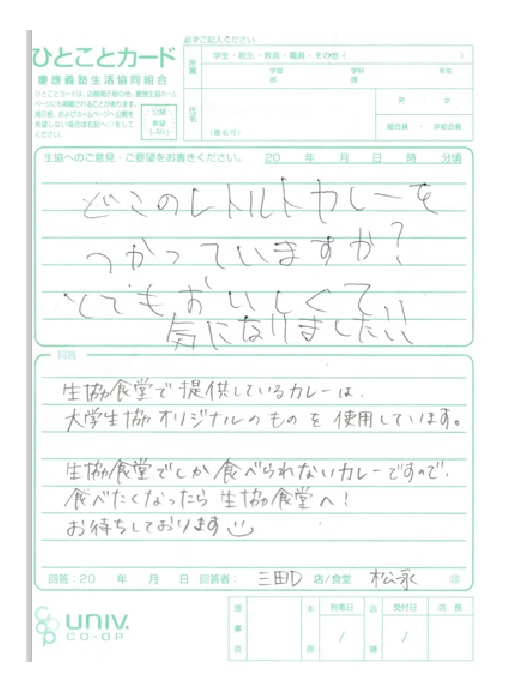 必ずご記入ください
ひとことカード
慶應義塾生活協同組合
ひとことカードは、店頭掲示板の他、慶應生協ホームページにも掲載されることがあります。
掲示板、およびホームページへ公開を希望しない場合は右記へ○をしてください。
公開
希望
しない
所属
学生・院生・教員・職員・その他(　　)
学部　学科　年生
部　課
氏名
(匿名可)
男・女
組合員・非組合員
生協へのご意見・ご要望をお書きください。　20　年　月　日　時　分頃
どこのレトルトカレーを
つかっていますか?
とてもおいしくて!!
気になりました!!
回答
生協食堂で提供しているカレーは、
大学生協オリジナルのものを使用しています。
生協食堂でしか食べられないカレーですので、
食べたくなったら生協食堂へ!
お待ちしております
回答:20　年　月　日　回答者:　三田　店/食堂　松永　㊞
UNIV.
CO-OP
理事会
本部
到着日
/
店舗
受付日
/
店長